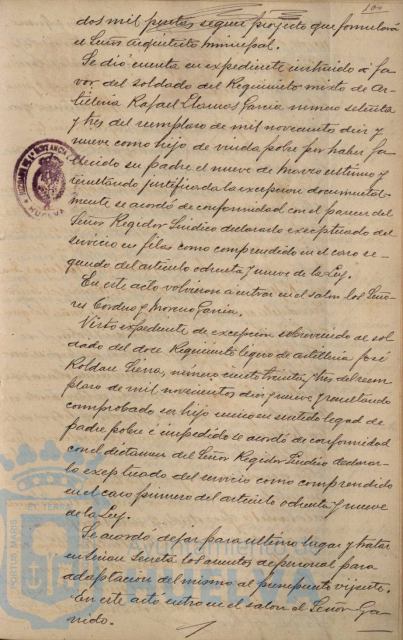 100
dos mil pesetas segun proyecto que formulará
el Señor Arquitecto Municipal.
Se dió cuenta en expediente instruido á fa-
vor del soldado del Regimiento mixto de Ar-
tilleria Rafael Llamas Garcia numero setenta
y tres del reemplazo de mil novecientos diez y
nueve como hijo de viuda pobre por haber fa-
llecido su padre el nueve de Marzo ultimo y
resultando justificada la excepcion documental-
mente se acordó de conformidad con el parecer del
Señor Regidor Sindico declararlo exceptuado del
servicio en filas como comprendido en el caso se-
gundo del articulo ochenta y nueve de la Ley.
En este acto volvieron a entrar en el salon los Seño-
res Cordero y Moreno Garcia.
Visto expediente de excepcion sobrevenida de sol-
dado del doce Regimiento ligero de artilleria José
Roldan Sierra, numero ciento treinta y tres del reem-
plazo de mil novecientos diez y nueve y resultando
comprobado ser hijo unico en sentido legal de
padre pobre é impedido se acordó de conformidad
con el dictamen del Señor Regidor Sindico declarar-
lo exceptuado del servicio como comprendido
en el caso primero del articulo ochenta y nueve
de la Ley.
Se acordó dejar para ultimo lugar y tratar
en sesion secreta los asuntos de personal para
adaptacion del mismo al presupuesto vigente.
En este acto entro en el salon el Señor Ga-
rrido.